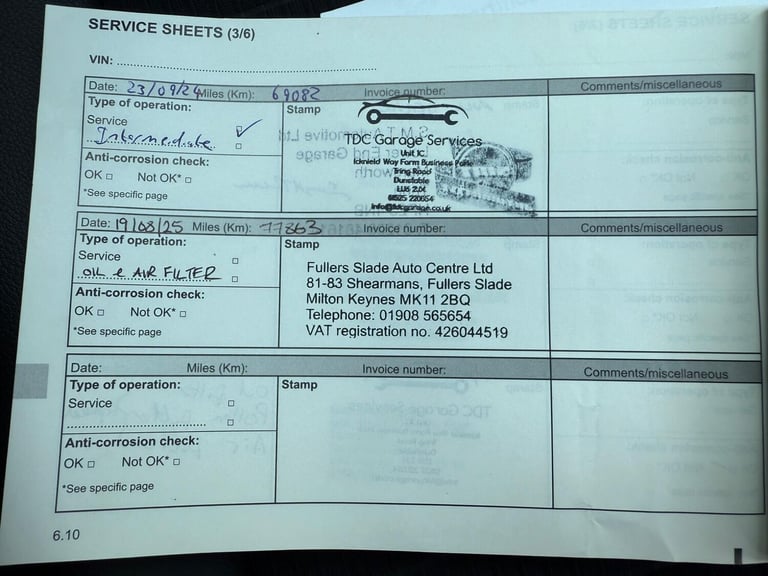 SERVICE SHEETS (3/6)
VIN:
Date: 23/09/24 Miles (Km): 69082 Invoice number: Comments/miscellaneous
Type of operation:
Service
Intermediate
Anti-corrosion check:
OK Not OK*
*See specific page
Stamp
TDC Garage Services
Unit 1C
Icknield Way Farm Business Park
Tring Road
Dunstable
LU6 2JX
01525 220654
info@tdcgarage.co.uk
Date: 19/08/25 Miles (Km): 77863 Invoice number: Comments/miscellaneous
Type of operation:
Service
OIL & AIR FILTER
Anti-corrosion check:
OK Not OK*
*See specific page
Stamp
Fullers Slade Auto Centre Ltd
81-83 Shearmans, Fullers Slade
Milton Keynes MK11 2BQ
Telephone: 01908 565654
VAT registration no. 426044519
Date: Miles (Km): Invoice number: Comments/miscellaneous
Type of operation:
Service
Anti-corrosion check:
OK Not OK*
*See specific page
Stamp
6.10